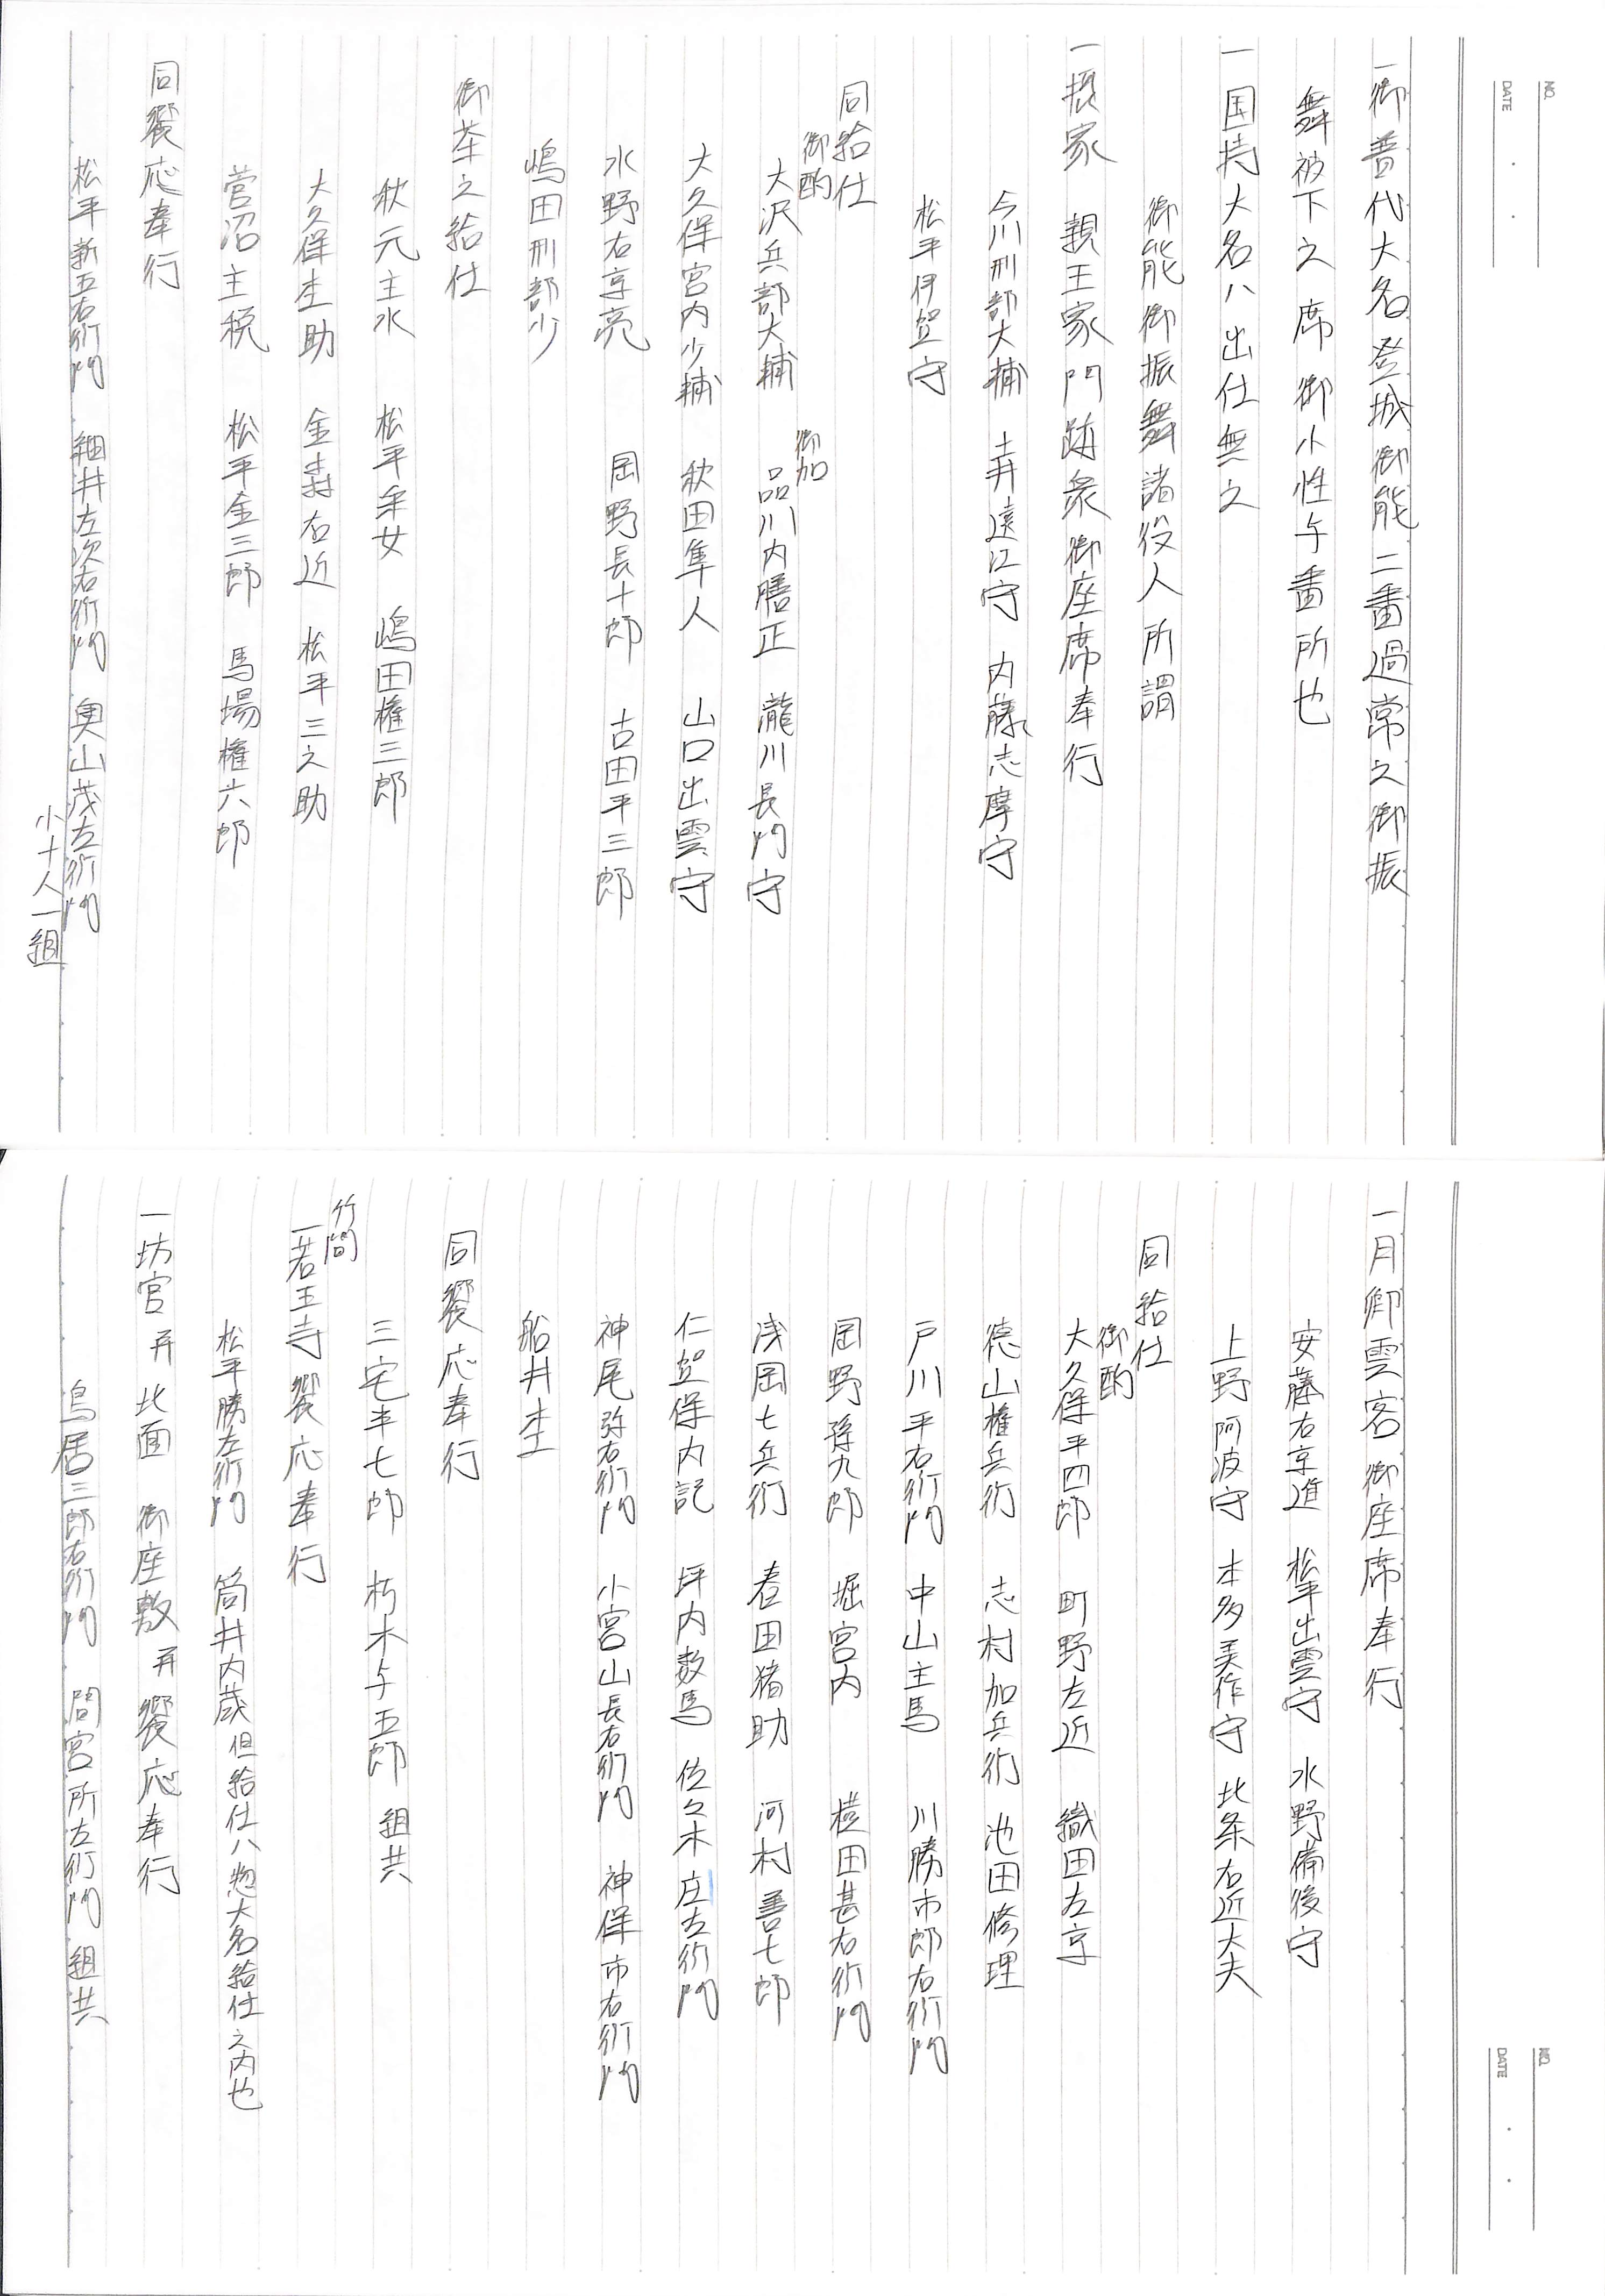 一御普代大名登城御能二番過常之御振
舞被下之席御小性与番所也
一国持大名ハ出仕無之
御能御振舞諸役人所謂
一摂家 親王家門跡衆御座席奉行
今川刑部大輔 土井遠江守 内藤志摩守
松平伊賀守
同給仕
御酌 御加
大沢兵部大輔 品川内膳正 瀧川長門守
大久保宮内少輔 秋田隼人 山口出雲守
水野右京亮 岡野長十郎 古田平三郎
嶋田刑部少
御茶之給仕
秋元主水 松平采女 嶋田権三郎
大久保杢助 金森右近 松平三之助
菅沼主税 松平金三郎 馬場権六郎
同饗応奉行
松平新五右衛門 細井左次右衛門 奥山茂左衛門
小十人一組
一月卿雲客御座席奉行
安藤右京進 松平出雲守 水野備後守
上野阿波守 本多美作守 北条右近大夫
同給仕
御酌
大久保平四郎 町野左近 織田左京
徳山権兵衛 志村加兵衛 池田修理
戸川平右衛門 中山主馬 川勝市郎右衛門
岡野孫九郎 堀宮内 横田甚右衛門
浅岡七兵衛 春田猪助 河村善七郎
仁賀保内記 坪内数馬 佐々木庄左衛門
神尾弥右衛門 小宮山長右衛門 神保市右衛門
船井杢
同饗応奉行
三宅半七郎 朽木与五郎 組共
竹間
一若王寺饗応奉行
松平勝左衛門 筒井内蔵 但給仕ハ惣大名給仕之内也
一坊官并北面 御座敷并饗応奉行
鳥居三郎右衛門 間宮所左衛門 組共
NO.
DATE
NO.
DATE